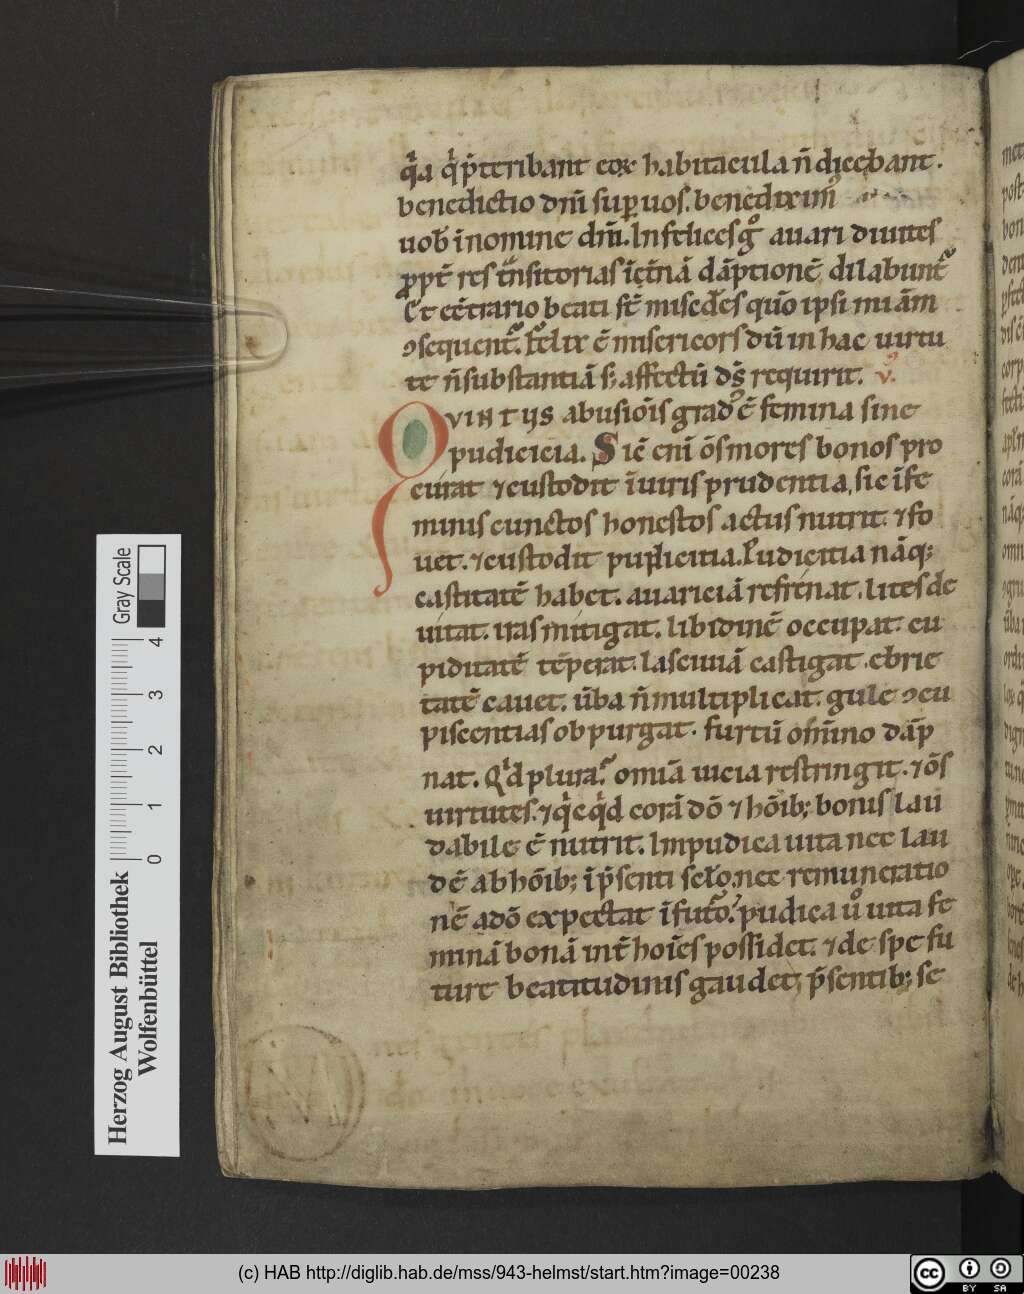 qͥa qͥ p̄teribant eoꝝ habitacula n̄ dicebant.
benedictio dn̄i suꝑ uos. benedixim᷒
uob̄ in nomine dn̄i. Infelices gͦ auari diuites
ꝓpt̄ res tn̄sitorias ī et̄nā dāptionē dilabunt᷑
Et ec̄trario beati st̄ mis̄cdes quō ipsi miām
ꝯsequent᷑. felix ē misericors dū in hac uirtu
te n̄ substantiā s; affectū ds̄ requirit. v.
QVINTVS abusiōis gradꝰ ē femina sine
pudicicia. Sic̄ eni ōs mores bonos pro
curat ⁊ custodit ī uiris prudentia, sic ī fe
minis cunctos honestos actus nutrit. ⁊ fo
uet. ⁊ custodit pudicitia. Pudicitia nāq;
castitatē habet. auariciā refrenat. lites de
uitat. iras mitigat. libidinē occupat. cu
piditatē tēperat. lasciuiā castigat. ebrie
tatē cauet. ūba n̄ multiplicat. gule ꝯcu
piscentias obpurgat. furtū om̄ino dāp
nat. Qͥd plura? omīa uicia restringit. ⁊ ōs
uirtutes. ⁊ qͥcqͥd corā dō ⁊ hōib; bonis lau
dabile ē nutrit. Impudica uita nec lau
dē ab hōib; ī p̄senti sclo. nec remuneratio
nē a dō expectat ī futo. pudica uͦ uita fe
minā bonā int̄ hoīes possidet. ⁊ de spe fu
ture beatitudinis gaudet; p̄sentib; se
Gray Scale
4
3
2
1
0
Herzog August Bibliothek
Wolfenbüttel
(c) HAB http://diglib.hab.de/mss/943-helmst/start.htm?image=00238
cc BY SA